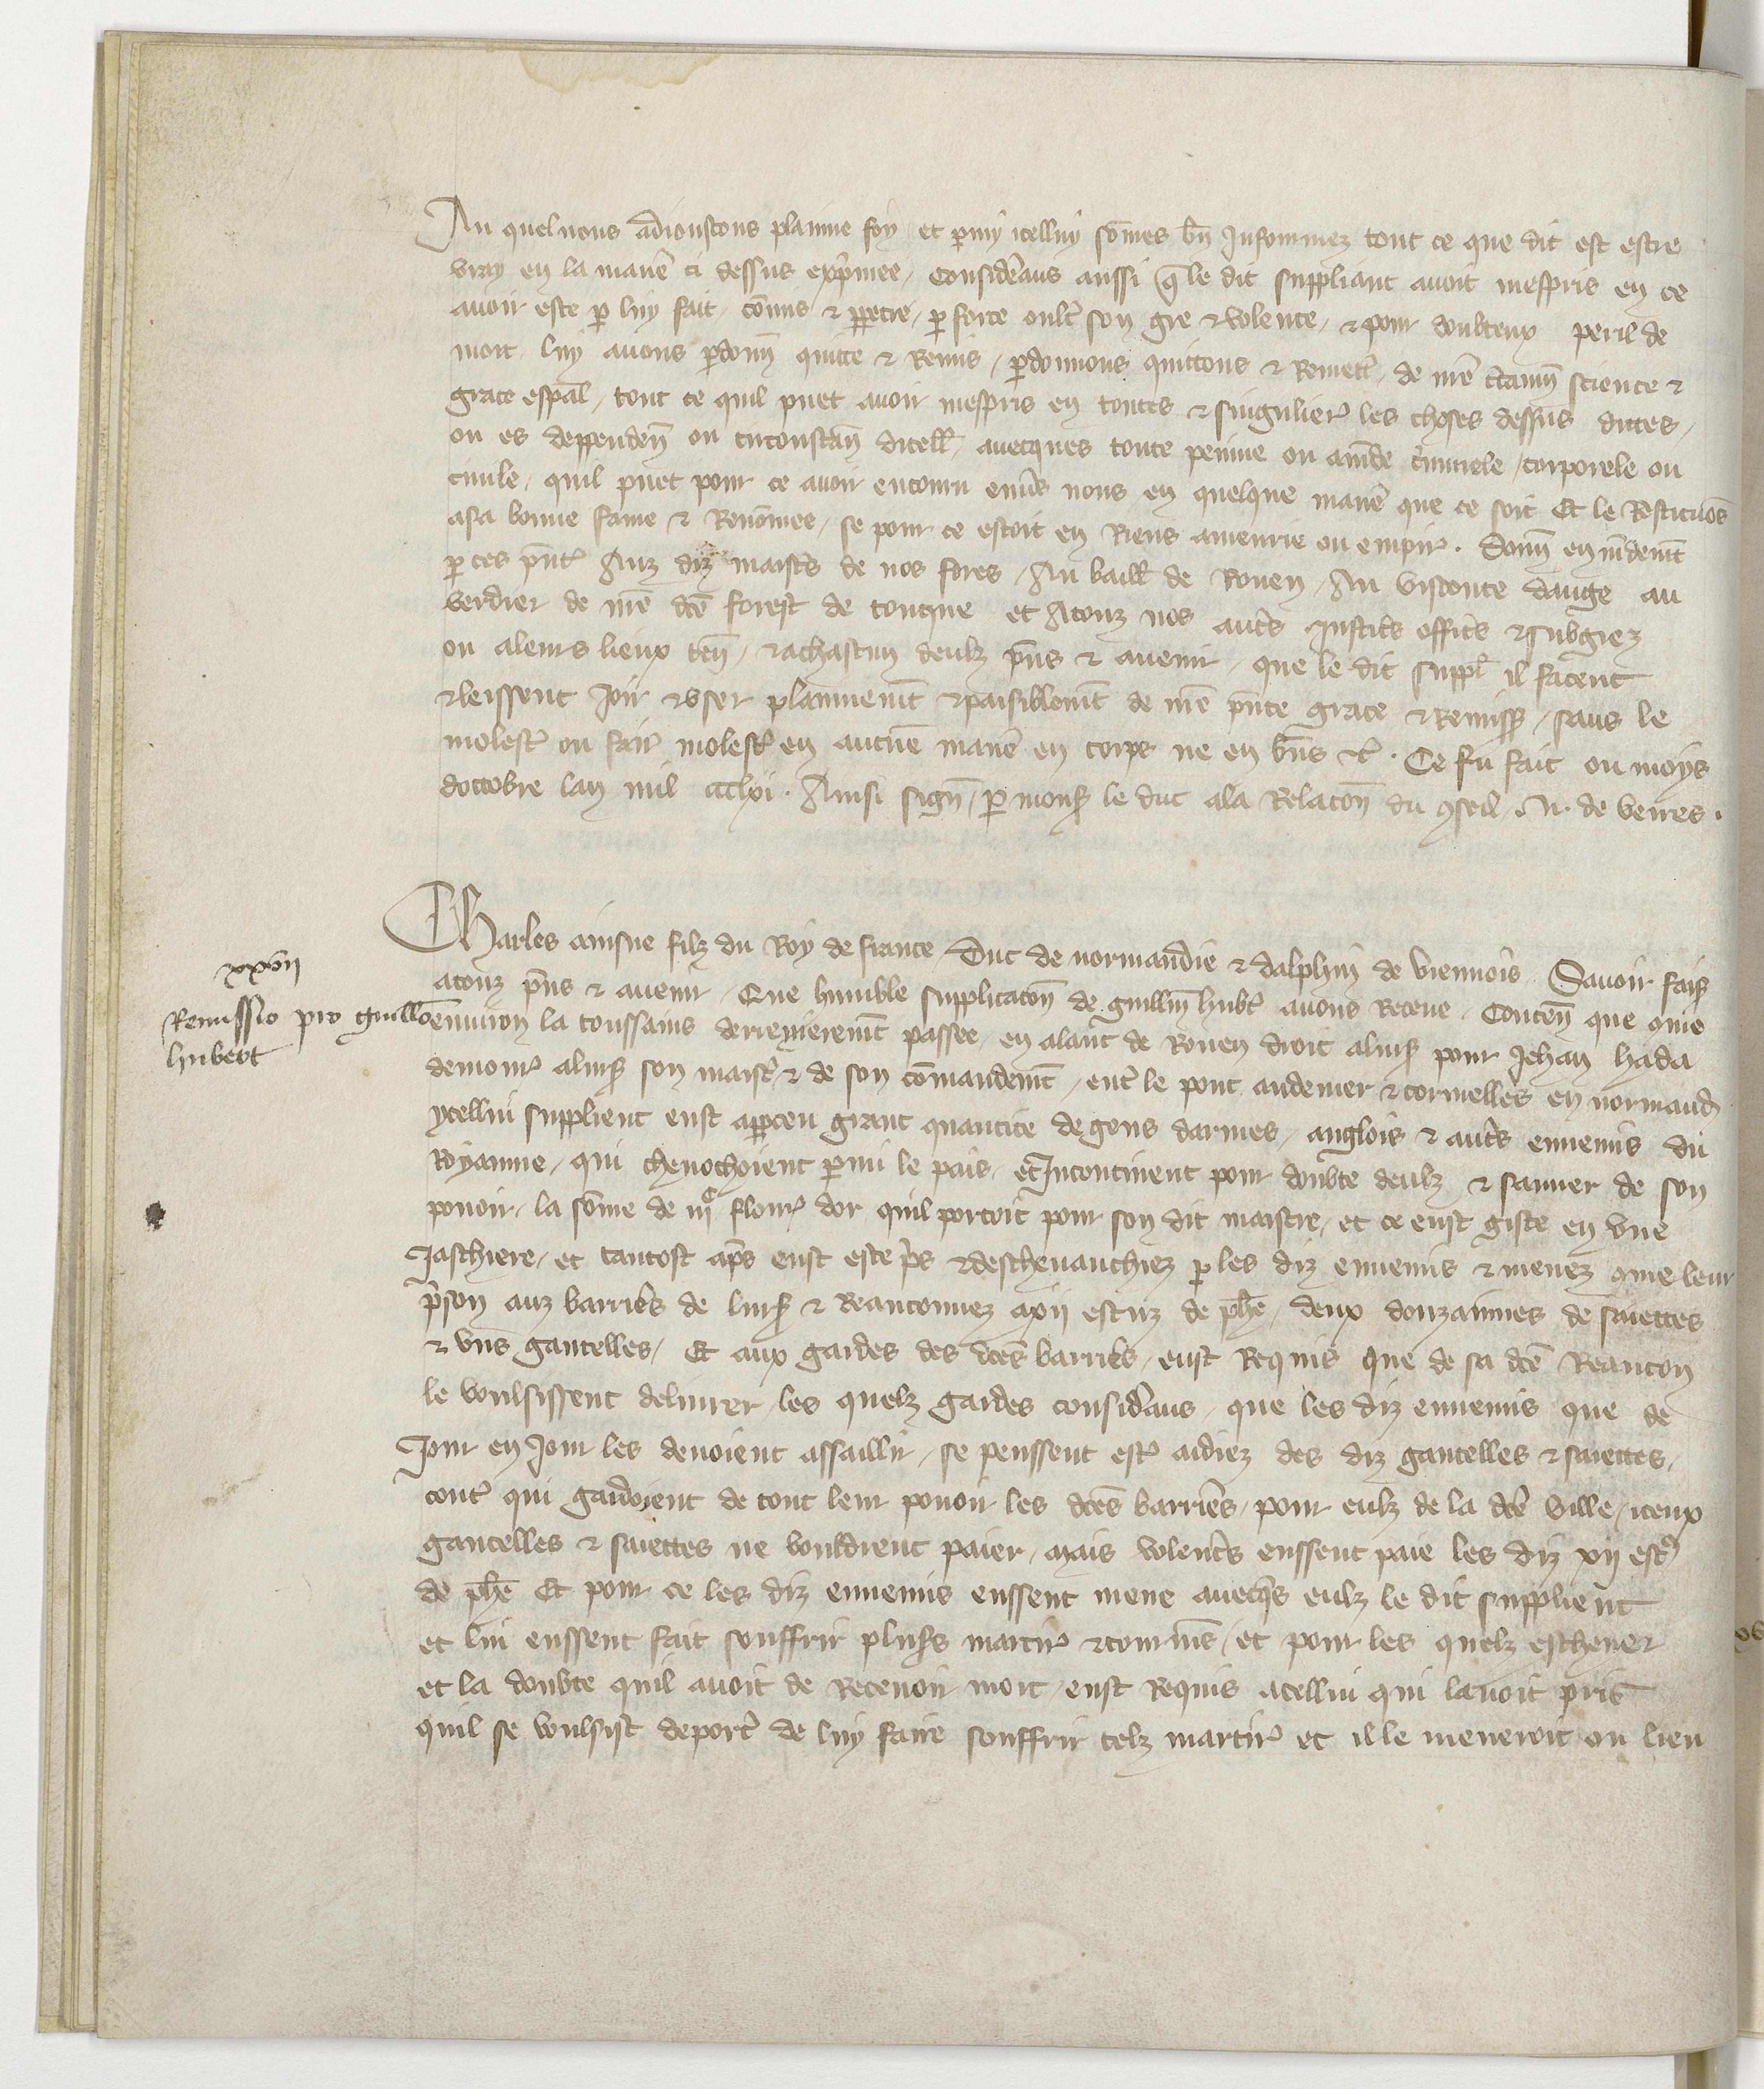 Au quel nous adioustons plainne foy et p̲my icelluy som̄es bn̄ Infourmez tout ce que dit est estre
vray en la manē ci dessus exp̄mee, Considerans aussi q̄ le dit suppliant auoit mespris en ce
auoir este p̲ luy fait, com̄is & p̲petre, p̲ force oult̄ son gre & volente, & pour doubteux peril de
mort luy auons p̲donn̄ quitte & Remis, p̲donnons quittons & Remett̄, de nr̄e c̄tainn̄ science &
grace esp̄al, tout ce quil puet auoir mespris en toutes & singulier̄ les choses dessus dictes,
ou es deppenden̄ ou circonstan̄ dicell̄, auecques toute peinne ou am̄de c̄iminele, corporele ou
ciuile, quil puet pour ce auoir encouru enuēs nous en quelque manē que ce soit Et le Restituōs
asa bonne fame & Renom̄ee, se pour ce estoit en Riens amenrie ou empir̄. Donn̄ en mādemt̄
p̲ ces pn̄t̄ Auz diz maistēs de nos fores, Au baill̄ de Rouen, Au viconte dauge au
verdier de nr̄e dc̄e forest de touque et Atouz nos autēs Justicēs officēs & subgiez
ou aleurs lieux ten̄, & achascun deulz pn̄s & auenir, que le dit suppl̄ il facent
& leissent Joir & vser plainnemt̄ & paisiblemt̄ de nr̄e pn̄te grace & Remiss̄, sans le
molest̄ ou fair̄ molest̄ en aucun̄e manē en corps ne en bn̄s &c̄. Ce fu fait ou moys
doctobre lan mil ccclvi. Ainsi sign̄, p̲ mons̄ le duc ala Relacōn du 9seil. N. de veires.
Charles ainsne filz du Roy de france Duc de normandie & dalphin de viennois Sauoir fais̄
atouz pn̄s & auenir, Que humble supplicacōn de guillm̄ hub̄t auons Receue, Conten̄ que 9me
enuiron la toussains derrenieremt̄ passee, en alant de Rouen droit alius̄ pour Jehan hada
demour̄ alius̄ son maist̄ & de son com̄andemt̄, ent̄ le pont audemer & cormelles en normand̄
ycellui supplient eust ap̲ceu grant quantite de gens darmes, anglois & autēs ennemis du
Royaume, qui cheuochoient p̲mi le pais, et Incontinent pour doubte deulz & sauuer de son
pouoir, la som̄e de iijc flour̄ dor quil portoit pour son dit maistre, et ce eust giste en vne
Jaschiere, et tantost ap̄s eust este p̄s & descheuauchiez p̲ les diz ennemis & menez 9me leur
p̄son auz barrieēs de luis̄ & Reanconnez axii escuz de ph̄e, deux douzainnes de saiettes
& vns gantelles, Et aux gardes des dc̄es barrieēs, eust Requis que de sa dc̄e Reancon
le voulsissent deliurer, les quelz gardes considerans, que les diz ennemis que de
Jour en Jour les deuoient assaillir, se peussent est̄ aidiez des diz gantelles & saiettes,
cont̄ qui gardoient de tout leur pouoir les dc̄es barrieēs, pour eulz de la dc̄e ville, iceux
gantelles & saiettes ne vouldrent paier, mais volentēs eussent paie les diz xij esc̄
de ph̄e Et pour ce les diz ennemis eussent mene auecq̄s eulz le dit supplient
et lui eussent fait souffrir plus̄s martir̄ & tourmn̄s, et pour les quelz escheuer
et la doubte quil auoit de Receuoir mort, eust Requis acellui qui lauoit pris
quil se voulsist deport̄ de luy faire souffrir telz martir̄ et il le meneroit ou lieu
xxvii
Remissio pro guillō
hubert